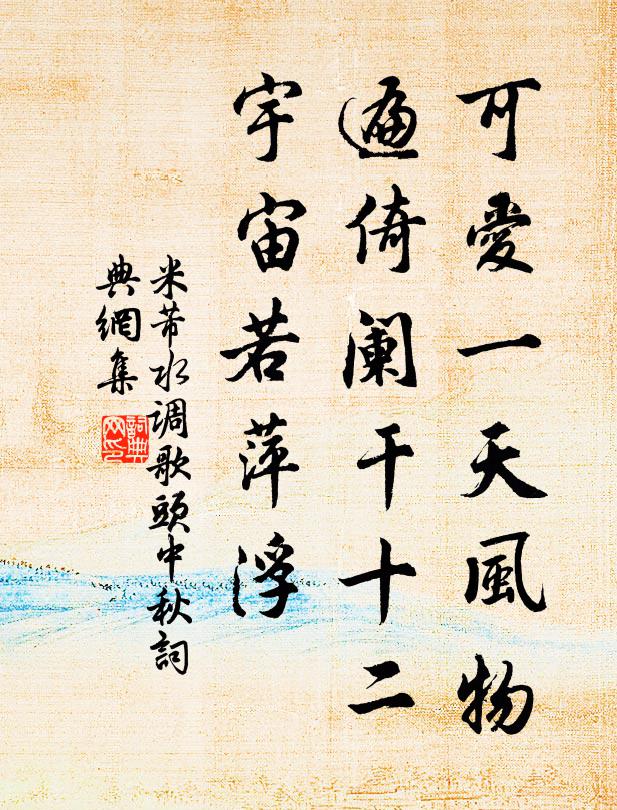 可愛一天風物
遍倚闌干十二
宇宙若萍浮
米芾水調歌頭中秋詞
典網集
詞典
网印